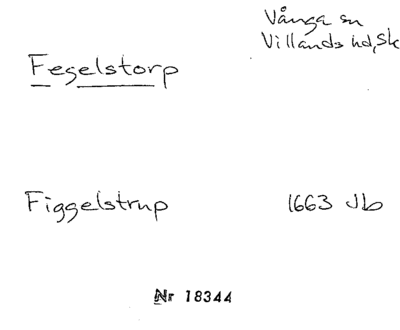 Vånga sn
Villands hd, Sk
Fegelstorp
Figgelstrup 1663 Jb
Nr 18344